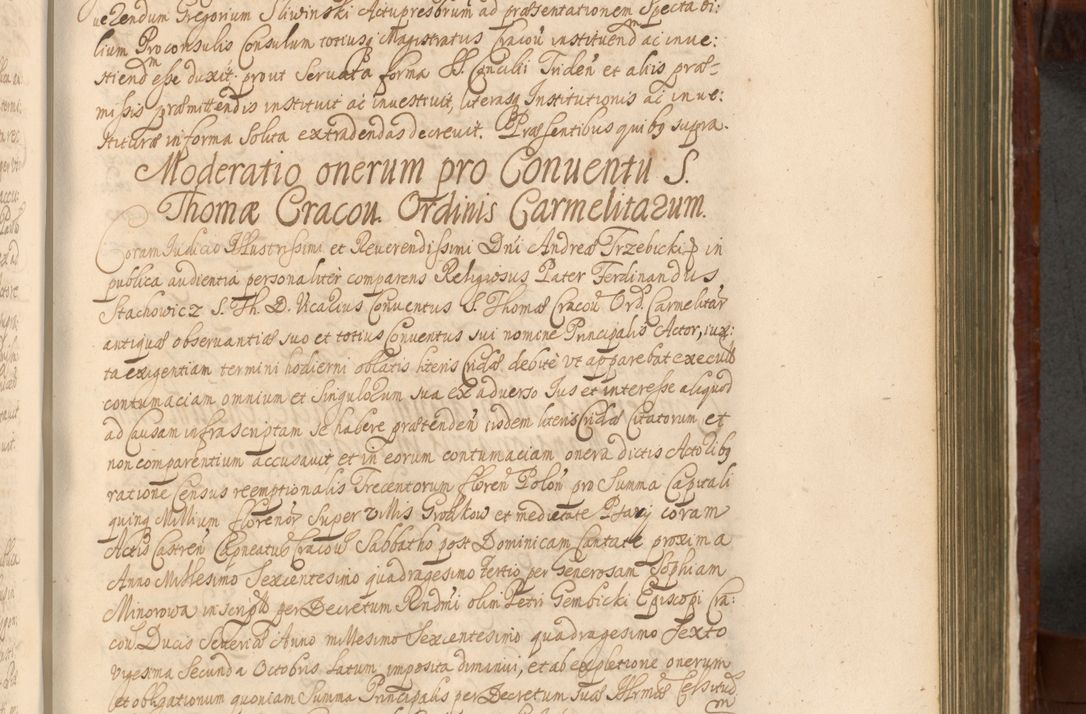 uerendum Gregorium Sliwinski Actupresbrum ad præsentationem Spectabi:
lium Proconsulis Consulum totiusq Magistratus Cracou instituend ac inue:
stiend esse duxit prout seruata forma S. Concilii Triden et aliis præ:
missis præmittendis instituit ac inuestiuit, literasq Institutionis ac inue:
stituræ in forma solita extradendas decreuit. Præsentibus quibq supra.
Moderatio onerum pro Conuentu S.
Thomæ Cracou. Ordinis Carmelitarum.
Coram Iudicio Illustrissimi et Reuerendissimi Dni Andreæ Trzebicki in
publica audientia personaliter comparens Religiosus Pater Ferdinandus
Stachowicz S. Th. D. Vicarius Conuentus S. Thomæ Cracou Ord. Carmelitar
antiquæ obseruantiæ suo et totius Conuentus sui nomine Principalis Actor, iux:
ta exigentiam termini hodierni oblatis literis Cridæ debite vt apparebat executis
contumaciam omnium et singulorum sua ex aduerso Ius et interesse aliquod
ad Causam infrascriptam se habere prætenden iisdem literis Cridæ Citatorum et
non comparentium accusauit et in eorum contumaciam onera dictis Actoribq
ratione Census reemptionalis Trecentorum floren Polon pro Summa Capitali
quinq Millium florenor super villis Grodkow et medietate coram
Actis Castren Capneatus Cracou Sabbatho post Dominicam Cantate proxima
Anno Millesimo Sexcentesimo quadragesimo tertio per Generosam Sophiam
Minorowa inscriptis per Decretum Rndmi olim Petri Gembicki Episcopi Cra:
cou Ducis Seueriæ Anno millesimo Sexcentesimo quadragesimo Sexto
vigesima Secunda Octobris latum imposita diminui, et ab expletione onerum
et obligationum quoniam Summa Principalis per Decretum suæ Illrmæ Celsitud